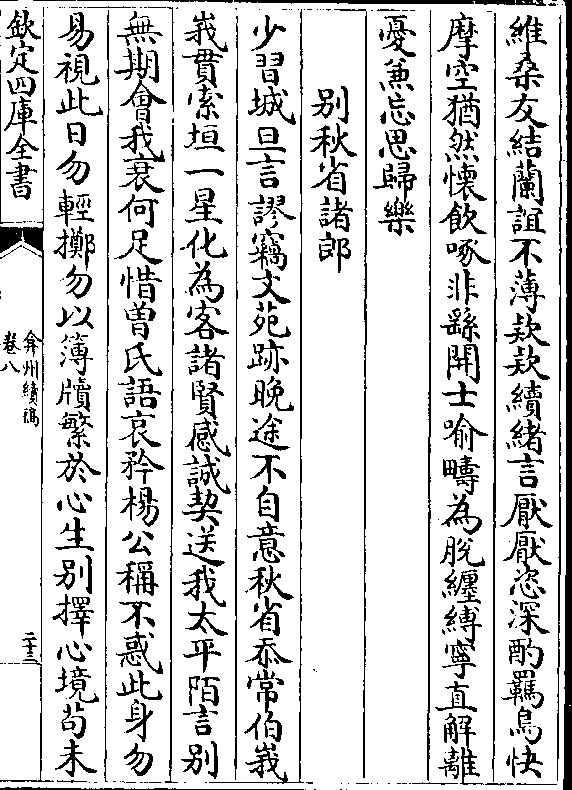 維桑友結蘭誼不薄欵欵續緒言厭厭恣深酌羈鳥快
摩空猶然懷飲啄非繇開士喻疇為脫纏縛寧直解離
憂兼忘思歸樂
別秋省諸郎
少習城旦言謬竊文苑跡晚途不自意秋省忝常伯峩
峩貫索垣一星化為客諸賢感誠契送我太平陌言別
無期會我衰何足惜曽氏語哀矜楊公稱不惑此身勿
易視此日勿輕擲勿以簿牘繁於心生別擇心境苟未
欽定四庫全書
弇州續稿
卷八
二十三